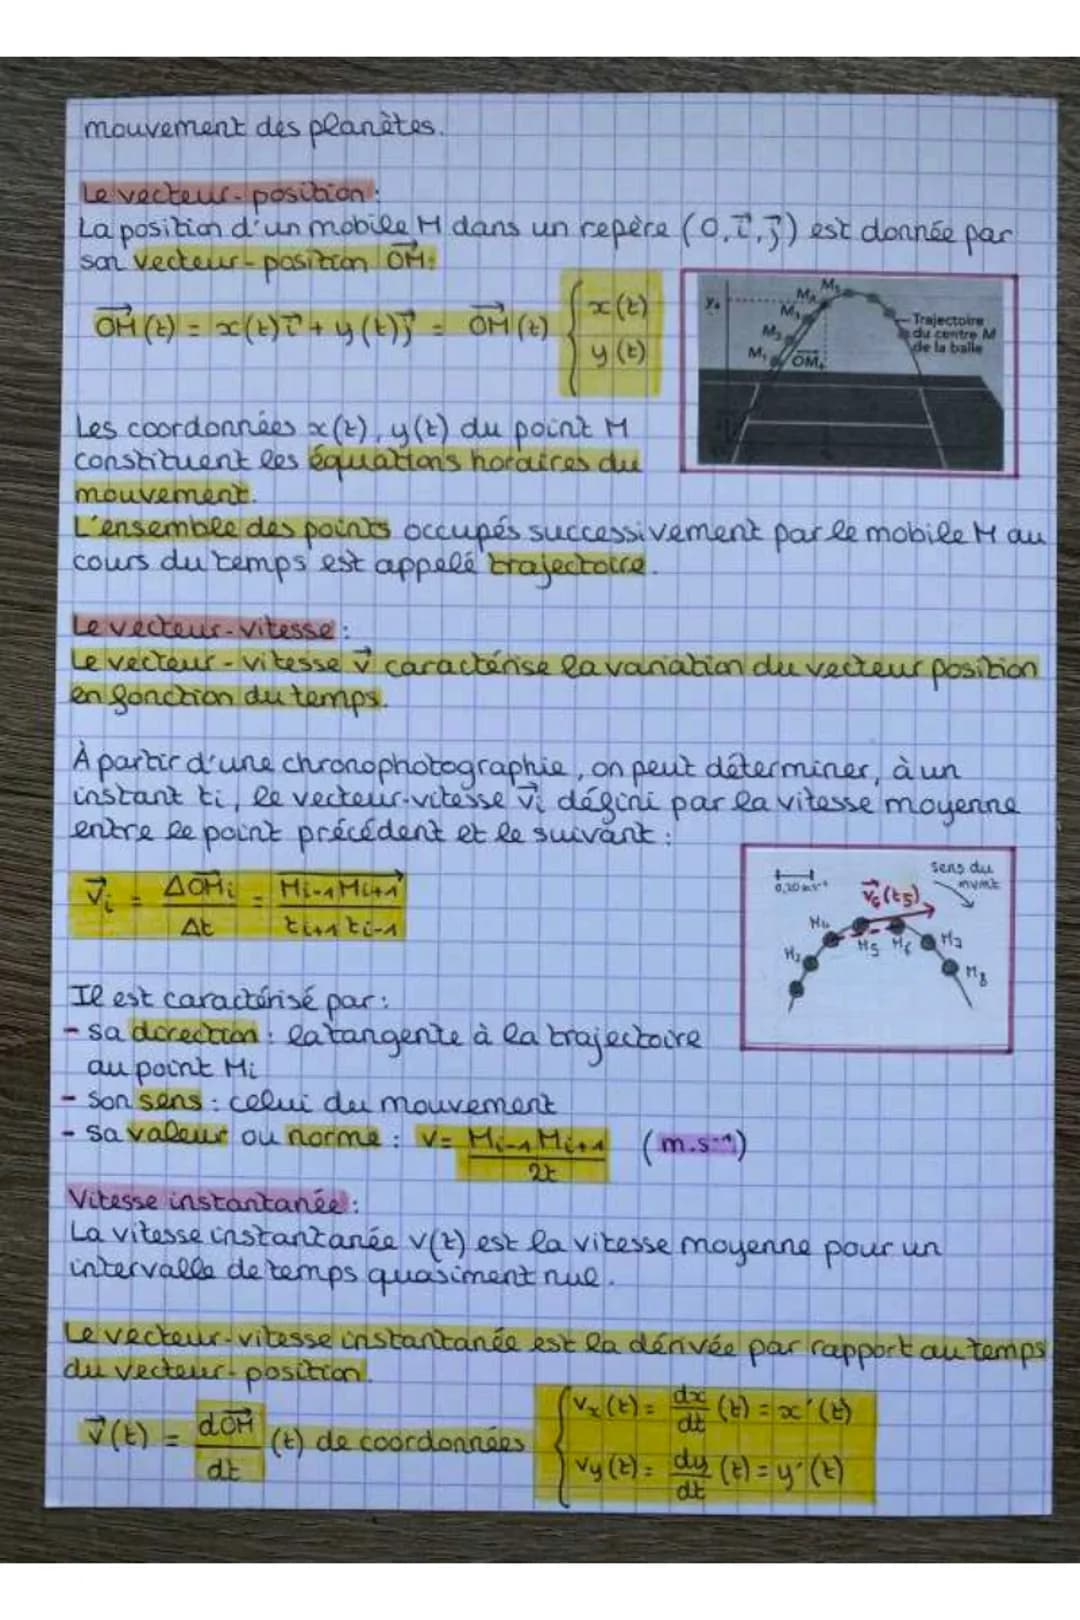 mouvement des planètes.
Le vecteur-position :
La position d'un mobile M dans un repère (O, i⃗, j⃗) est donnée par
son vecteur-position OM⃗ :
OM⃗(t) = x(t) i⃗ + y(t) j⃗ = OM⃗(t) { x(t)
y(t)
y₄
M₁
M₂
M₃
M₄
M₅
OM⃗₄
Trajectoire
du centre M
de la balle
Les coordonnées x(t), y(t) du point M
constituent les équations horaires du
mouvement.
L'ensemble des points occupés successivement par le mobile M au
cours du temps est appelé trajectoire.
Le vecteur-vitesse :
Le vecteur-vitesse v⃗ caractérise la variation du vecteur position
en fonction du temps.
À partir d'une chronophotographie, on peut déterminer, à un
instant ti, le vecteur-vitesse v⃗i défini par la vitesse moyenne
entre le point précédent et le suivant :
v⃗i = ΔOM⃗i / Δt = Mi-1Mi+1 / ti+1 ti-1
0,20 m.s⁻¹
sens du
mvmt
v⃗₅(t₅)
M₃
M₄
M₅
M₆
M₇
M₈
Il est caractérisé par :
- sa direction : la tangente à la trajectoire
au point Mi
- Son sens : celui du mouvement
- sa valeur ou norme : v = Mi-1Mi+1 / 2t (m.s⁻¹)
Vitesse instantanée :
La vitesse instantanée v(t) est la vitesse moyenne pour un
intervalle de temps quasiment nul.
Le vecteur-vitesse instantanée est la dérivée par rapport au temps
du vecteur-position.
v⃗(t) = dOM⃗/dt (t) de coordonnées { vx(t) = dx/dt (t) = x'(t)
vy(t) = dy/dt (t) = y'(t)